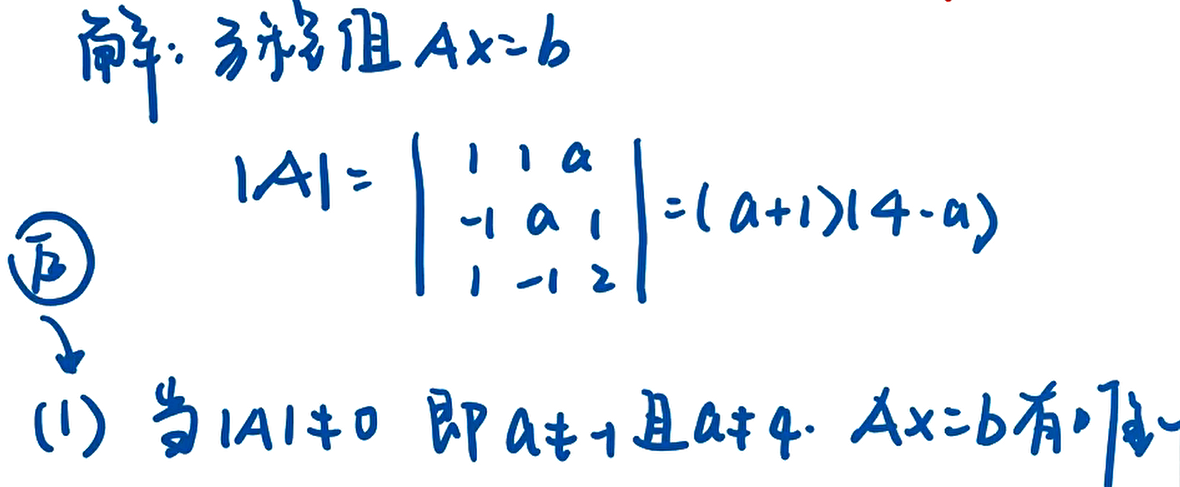 解: 方程组 Ax=b
|A| = | 1 1 a |
| -1 a 1 | =(a+1)(4-a)
| 1 -1 2 |
(1) 当|A|≠0 即a≠-1且a≠4. Ax=b有唯一